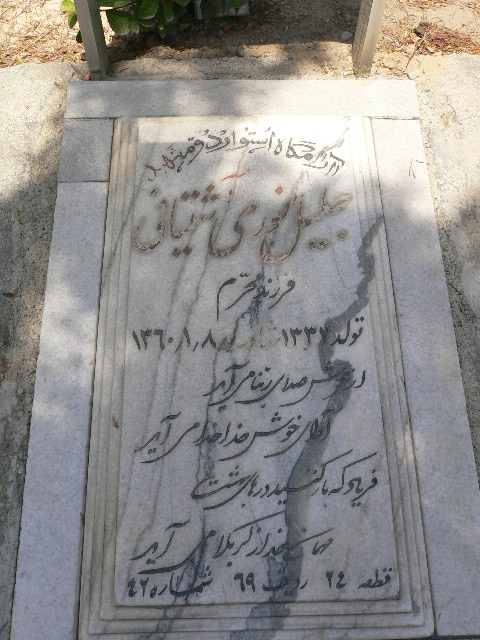 آرامگاه استوار دوم شهید
جلیل نوری آشتیانی
فرزند محرم
تولد ۱۳۳۷ شهادت ۱۳۶۰/۱/۸
از عرش صدای ربنا می‌آید
آوای خوش خدا خدا می‌آید
فریاد که باز کنید درهای بهشت
مهمان خدا از کربلا می‌آید
قطعه ۲۴ ردیف ۶۹ شماره ۴۲